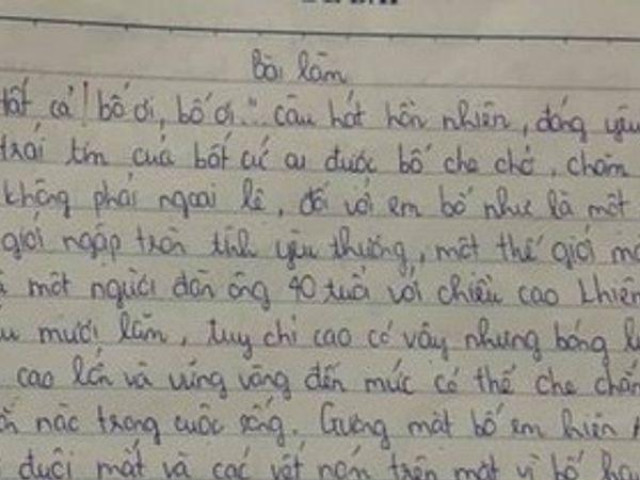 Bài làm
tất cả! bố ơi, bố ơi." câu hát hồn nhiên, đáng yêu
trái tim của bất cứ ai được bố che chở, chăm
không phải ngoại lệ, đối với em bố như là một
giới ngập tràn tình yêu thương, một thế giới
một người đàn ông 40 tuổi với chiều cao khiêm
mươi lăm, tuy chỉ cao có vậy nhưng bóng
cao lớn và vững vàng đến mức có thể che chắn
nấc trong cuộc sống. Gương mặt bố em hiện
đuôi mắt và các vết nám trên mặt vì bố hay